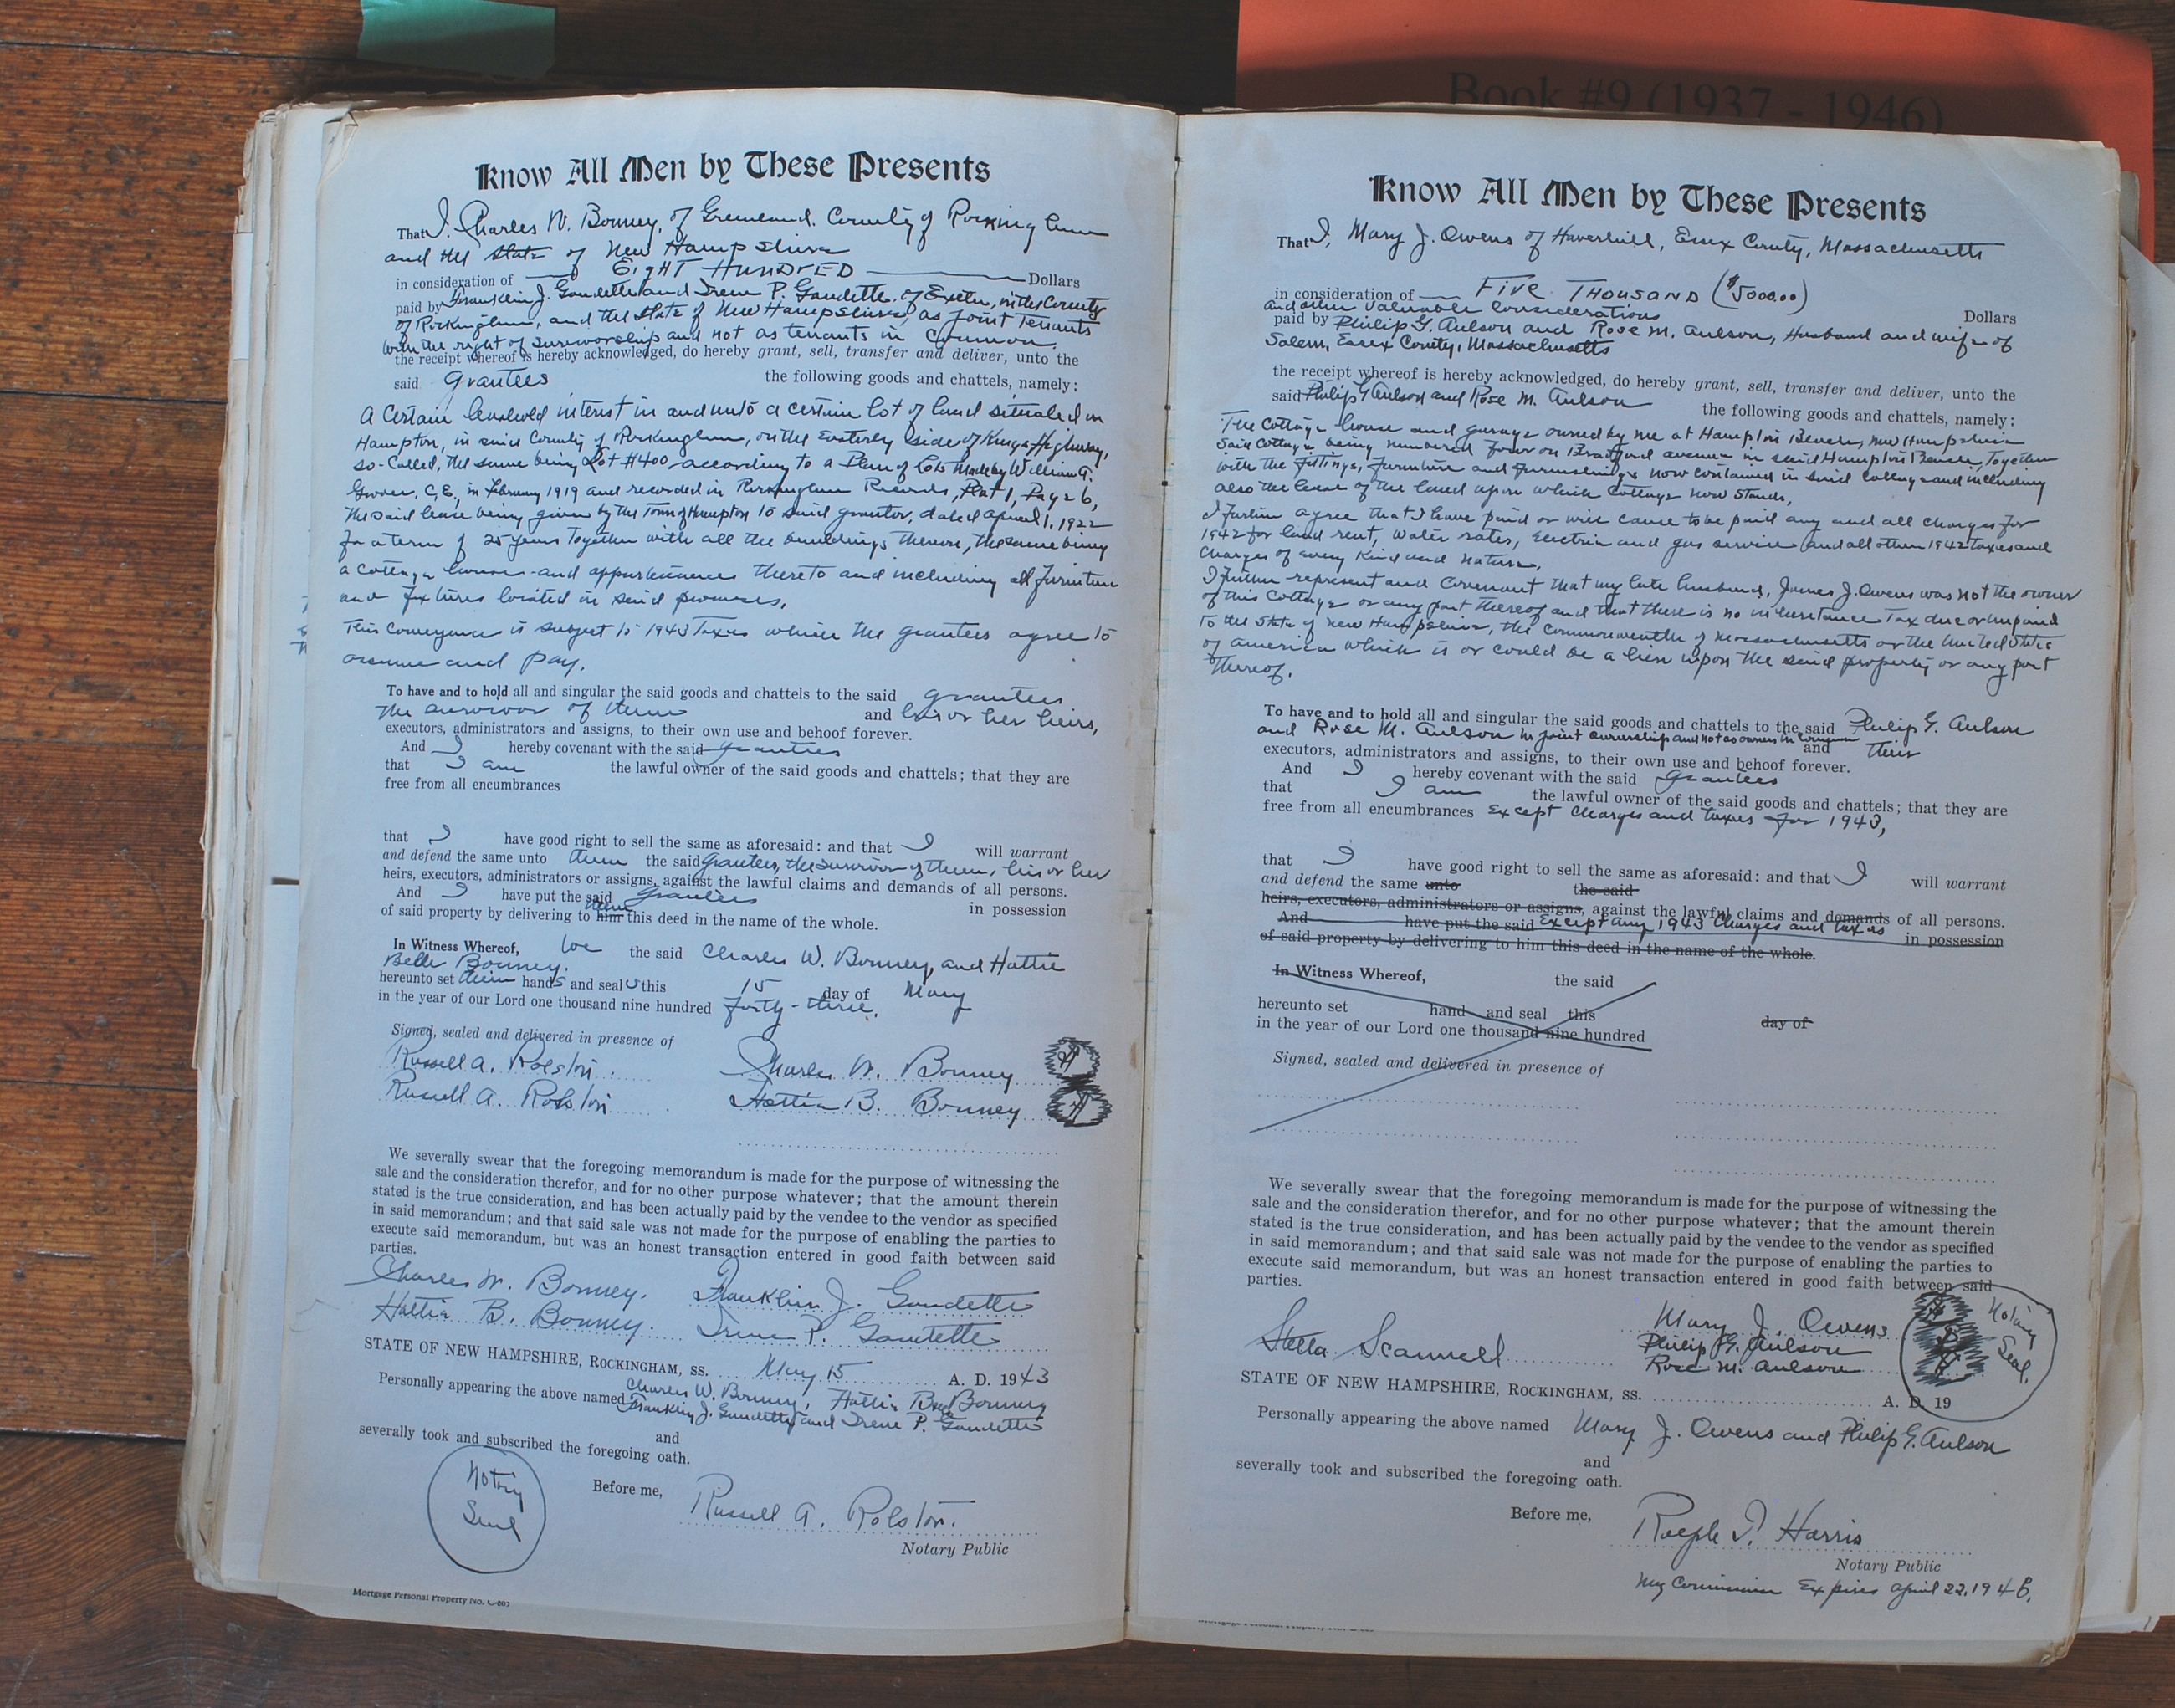 Book #9 (1937 - 1946)
Know All Men by These Presents
That I, Charles W. Bonney, of Greenland, County of Rockingham
and the State of New Hampshire
in consideration of EIGHT HUNDRED Dollars
paid by Franklin J. Gaudette and Irene P. Gaudette, of Exeter, in the County
of Rockingham, and the State of New Hampshire, as joint Tenants
with the right of survivorship and not as tenants in Common.
the receipt whereof is hereby acknowledged, do hereby grant, sell, transfer and deliver, unto the
said grantees the following goods and chattels, namely:
A Certain leasehold interest in and unto a certain lot of land situated in
Hampton, in said County of Rockingham, on the Easterly side of Kings Highway,
so-called, the same being Lot #400 according to a Plan of Lots made by William A.
Grover, C.E., in February 1919 and recorded in Rockingham Records, Plat 1, Page 6,
the said lease being given by the Town of Hampton to said grantor, dated April 1, 1922
for a term of 25 years Together with all the buildings thereon, the same being
a cottage house and appurtenances thereto and including all furniture
and fixtures located in said premises.
This conveyance is subject to 1943 Taxes which the grantees agree to
assume and pay.
To have and to hold all and singular the said goods and chattels to the said grantees
the survivor of them and his or her heirs,
executors, administrators and assigns, to their own use and behoof forever.
And I hereby covenant with the said grantees
that I am the lawful owner of the said goods and chattels; that they are
free from all encumbrances
that I have good right to sell the same as aforesaid: and that I will warrant
and defend the same unto them the said grantees, the survivor of them, his or her
heirs, executors, administrators or assigns, against the lawful claims and demands of all persons.
And I have put the said grantees in possession
of said property by delivering to him them this deed in the name of the whole.
In Witness Whereof, we the said Charles W. Bonney, and Hattie
Belle Bonney.
hereunto set their hands and seals this 15 day of May
in the year of our Lord one thousand nine hundred forty-three.
Signed, sealed and delivered in presence of
Russell A. Rolston Charles W. Bonney
Russell A. Rolston Hattie B. Bonney
We severally swear that the foregoing memorandum is made for the purpose of witnessing the
sale and the consideration therefor, and for no other purpose whatever; that the amount therein
stated is the true consideration, and has been actually paid by the vendee to the vendor as specified
in said memorandum; and that said sale was not made for the purpose of enabling the parties to
execute said memorandum, but was an honest transaction entered in good faith between said
parties.
Charles W. Bonney. Franklin J. Gaudette
Hattie B. Bonney. Irene P. Gaudette
STATE OF NEW HAMPSHIRE, ROCKINGHAM, SS. May 15 A. D. 1943
Personally appearing the above named Charles W. Bonney, Hattie B. Bonney
Franklin J. Gaudette and Irene P. Gaudette
and
severally took and subscribed the foregoing oath.
Notary
Seal
Before me, Russell A. Rolston.
Notary Public
Mortgage Personal Property No.
Know All Men by These Presents
That I, Mary J. Owens of Haverhill, Essex County, Massachusetts
in consideration of FIVE THOUSAND ($5000.00)
and other valuable considerations Dollars
paid by Philip G. Aulson and Rose M. Aulson, Husband and wife of
Salem, Essex County, Massachusetts
the receipt whereof is hereby acknowledged, do hereby grant, sell, transfer and deliver, unto the
said Philip G Aulson and Rose M. Aulson the following goods and chattels, namely:
The Cottage house and garage owned by me at Hampton Beach, New Hampshire
said Cottage being numbered four on Bradford avenue in said Hampton Beach, together
with the fittings, furniture and furnishings now contained in said cottage and including
also the lease of the land upon which Cottage now stands.
I further agree that I have paid or will cause to be paid any and all charges for
1942 for land rent, water rates, electric and gas service and all other 1942 taxes and
charges of every kind and nature.
I further represent and covenant that my late husband, James J. Owens was not the owner
of this Cottage or any part thereof and that there is no inheritance Tax due or unpaid
to the State of New Hampshire, the Commonwealth of Massachusetts or the United States
of America which is or could be a lien upon the said property or any part
thereof.
To have and to hold all and singular the said goods and chattels to the said Philip G. Aulson
and Rose M. Aulson in joint ownership and not as owners in common and their
executors, administrators and assigns, to their own use and behoof forever.
And I hereby covenant with the said grantees
that I am the lawful owner of the said goods and chattels; that they are
free from all encumbrances except charges and taxes for 1943,
that I have good right to sell the same as aforesaid: and that I will warrant
and defend the same unto the said
heirs, executors, administrators or assigns, against the lawful claims and demands of all persons.
And have put the said Except any 1943 charges and taxes in possession
of said property by delivering to him this deed in the name of the whole.
In Witness Whereof, the said
hereunto set hand and seal this day of
in the year of our Lord one thousand nine hundred
Signed, sealed and delivered in presence of
We severally swear that the foregoing memorandum is made for the purpose of witnessing the
sale and the consideration therefor, and for no other purpose whatever; that the amount therein
stated is the true consideration, and has been actually paid by the vendee to the vendor as specified
in said memorandum; and that said sale was not made for the purpose of enabling the parties to
execute said memorandum, but was an honest transaction entered in good faith between said
parties.
Stella Scannell Mary J. Owens
Philip G. Aulson
Rose M. Aulson
Notary
Seal.
STATE OF NEW HAMPSHIRE, ROCKINGHAM, SS. A. D. 19
Personally appearing the above named Mary J. Owens and Philip G. Aulson
and
severally took and subscribed the foregoing oath.
Before me, Ralph I. Harris
Notary Public
My Commission Expires April 22, 1948.